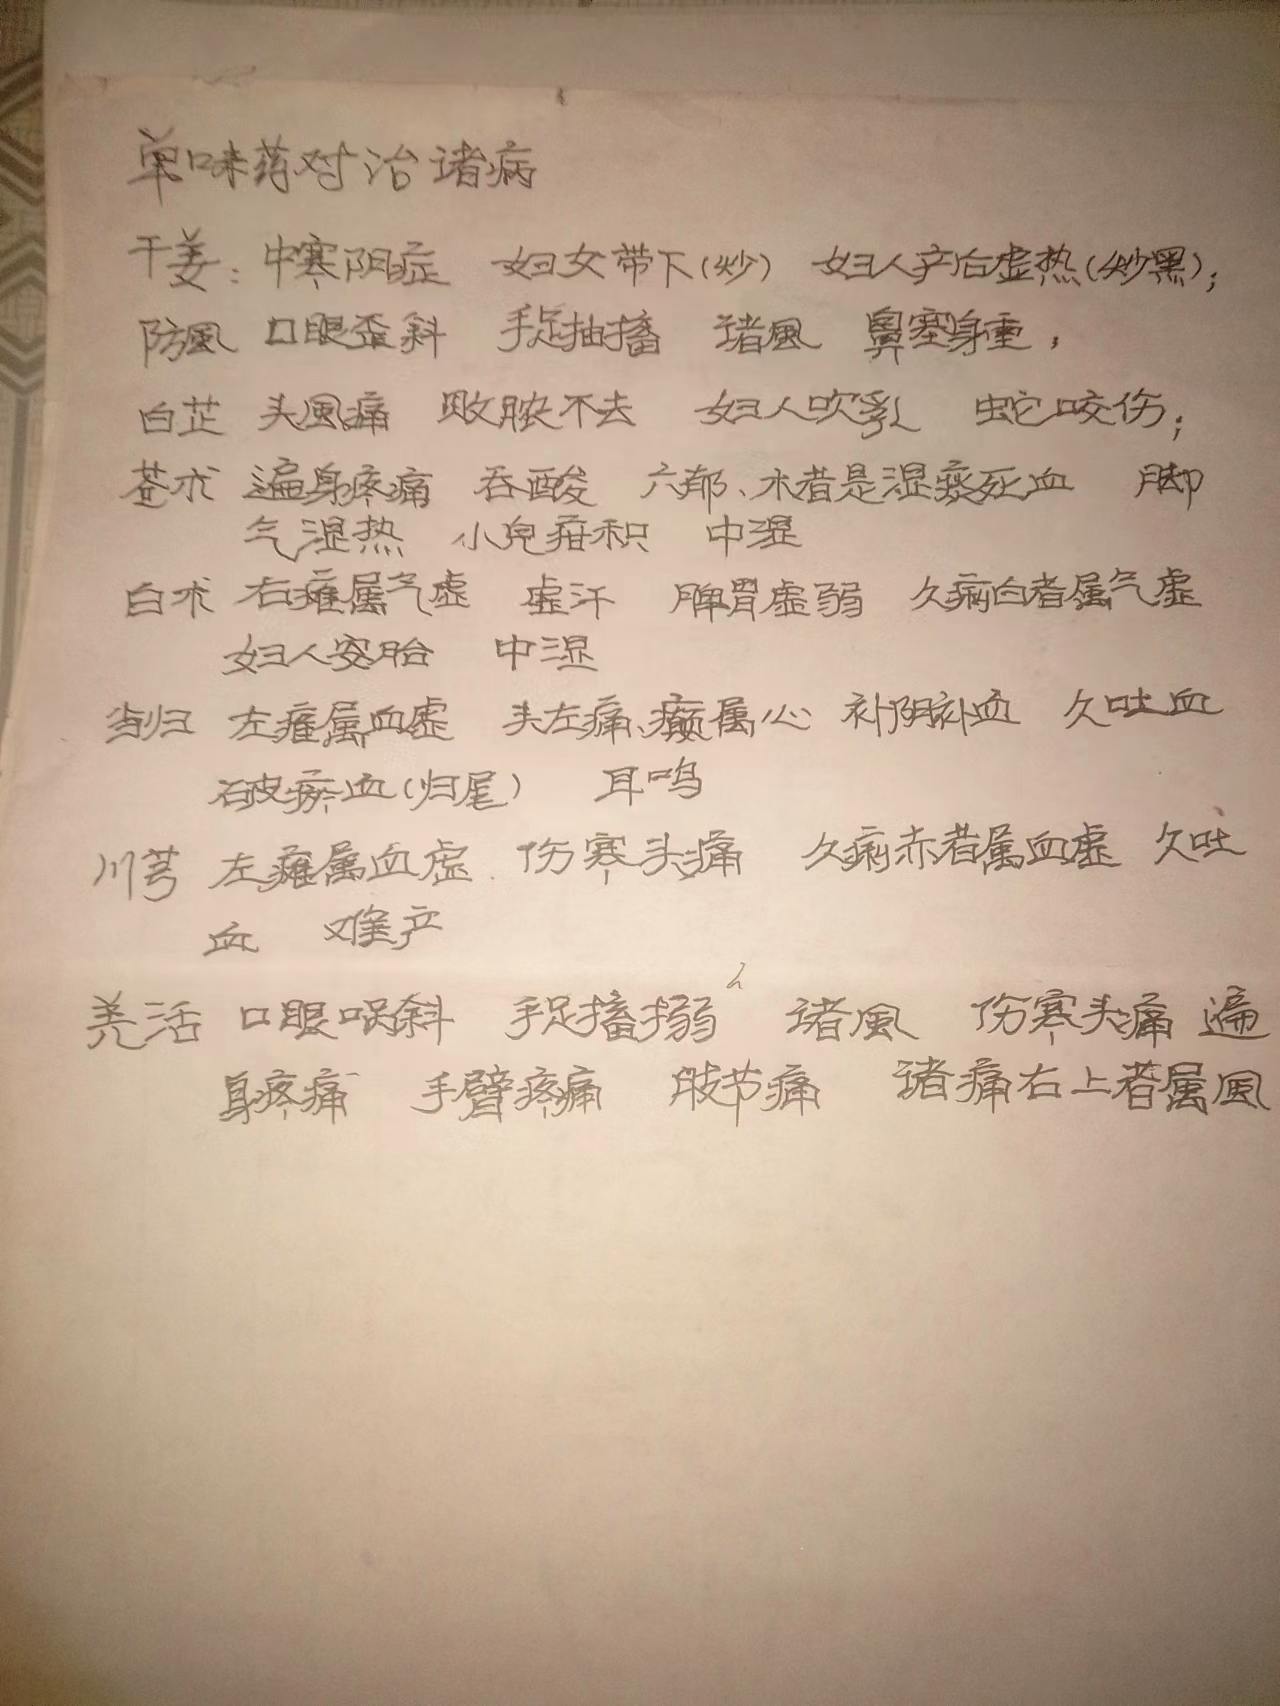 单味药对治诸病
干姜：中寒阴症 妇女带下(炒) 妇人产后虚热(炒黑)；
防風 口眼歪斜 手足抽搐 诸風 鼻塞身重，
白芷 头風痛 败脓不去 妇人吹乳 蛇咬伤；
苍术 遍身疼痛 吞酸 六郁、木者是湿痰死血 脚
气湿热 小兒疳积 中湿
白术 右瘫属气虚 虚汗 脾胃虚弱 久痢白者属气虚
妇人安胎 中湿
当归 左瘫属血虚 头左痛、癫属心 补阴补血 久吐血
破瘀血(归尾) 耳鸣
川芎 左瘫属血虚 伤寒头痛 久痢赤者属血虚 久吐
血 难产
羌活 口眼㖞斜 手足搐搦 诸風 伤寒头痛 遍
身疼痛 手臂疼痛 肢节痛 诸痛右上者属風